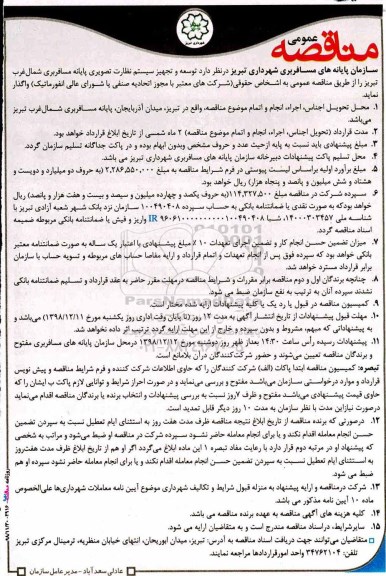 شهرداری تبریز
مناقصه عمومی
سازمان پایانه های مسافربری شهرداری تبریز درنظر دارد توسعه و تجهیز سیستم نظارت تصویری پایانه مسافربری شمال‌غرب
تبریز را از طریق مناقصه عمومی به اشخاص حقوقی(شرکت های معتبر با مجوز اتحادیه صنفی یا شورای عالی انفورماتیک) واگذار
نماید.
۱. محل تحویل اجناس، اجراء، انجام و اتمام موضوع مناقصه، واقع در تبریز، میدان آذربایجان، پایانه مسافربری شمال‌غرب تبریز
می‌باشد.
۲. مدت قرارداد (تحویل اجناس، اجراء، انجام و اتمام موضوع مناقصه) ۲ ماه شمسی از تاریخ ابلاغ قرارداد خواهد بود.
۳. مبلغ پیشنهادی باید نسبت به پایه ازحیث عدد و حروف مشخص وبدون ابهام بوده و در پاکت جداگانه تسلیم سازمان گردد.
۴. محل تسلیم پاکت پیشنهادات دبیرخانه سازمان پایانه های مسافربری شهرداری تبریز می باشد.
۵. مبلغ برآورد اولیه براساس لیست پیوستی در فرم شرایط مناقصه به مبلغ ۲.۲۸۶.۵۵۰.۰۰۰ (به حروف دو میلیارد و دویست و
هشتاد و شش میلیون و پانصد و پنجاه هزار) ریال خواهد بود.
۶. سپرده شرکت در مناقصه مبلغ ۱۱۴.۳۲۷.۵۰۰ (به حروف یکصد و چهارده میلیون و سیصد و بیست و هفت هزار و پانصد) ریال
خواهد بودکه به‌صورت نقدی یا ضمانتنامه بانکی به حساب سپرده ۱۰۰۴۹۰۴۰۸ سازمان نزد بانک شهر شعبه آزادی تبریز با
شناسه ملی ۱۴۰۰۰۳۰۳۴۵۷، شبا IR واریز و فیش یا ضمانتنامه بانکی مربوطه ضمیمه
اسناد مناقصه گردد.
۷. میزان تضمین حسن انجام کار و تضمین اجرای تعهدات ۱۰ ٪ مبلغ پیشنهادی با اعتبار یک ساله به صورت ضمانتنامه معتبر
بانکی خواهد بود که سپرده فوق پس از انجام تعهدات و اتمام قرارداد و ارایه مفاصا حساب های مربوطه و تسویه حساب با سازمان
برابر قرارداد مسترد خواهد شد.
۸. چنانچه برندگان اول و دوم مناقصه برابر مقررات و شرایط مناقصه درمهلت مقرر حاضر به عقد قرارداد و تسلیم ضمانتنامه بانکی
نشدند سپرده آنان به ترتیب به نفع سازمان ضبط می شود.
۹. کمیسیون مناقصه در قبول یا رد یک یا کلیه پیشنهادات ارایه شده مختار است.
۱۰. مهلت قبول پیشنهادات از تاریخ انتشار آگهی به مدت ۱۲ روز (تا پایان وقت اداری روز یکشنبه مورخ ۱۳۹۸/۱۲/۱۱) می‌باشد و
به پیشنهاداتی که مبهم، مشروط و بدون سپرده و خارج از این مهلت ارایه گردد ترتیب اثر داده نخواهد شد.
۱۱. پیشنهادات رسیده رأس ساعت ۱۴:۳۰ بعداز ظهر روز دوشنبه مورخ ۱۳۹۸/۱۲/۱۲ درمحل سازمان پایانه های مسافربری مفتوح
و برندگان مناقصه تعیین می‌شوند و حضور شرکت‌کنندگان درآن بلامانع است.
تبصره: کمیسیون مناقصه ابتدا پاکات (الف) شرکت کنندگان را که حاوی اطلاعات شرکت کننده و فرم شرایط مناقصه و پیش نویس
قرارداد و موارد درخواستی سازمان می‌باشد مفتوح و بررسی می‌نماید و در صورت احراز شرایط و توانایی لازم پاکت ب ایشان را که
حاوی قیمت پیشنهادی می‌باشد مفتوح و ظرف ۷روز نسبت به بررسی پیشنهادات و انتخاب برنده یا برندگان مناقصه اقدام می‌نماید
درصورت نیازاین مدت با نظر سازمان به مدت ۱۰ روز دیگر قابل تمدید است.
۱۲. درصورتی که برنده مناقصه از تاریخ ابلاغ نتیجه مناقصه ظرف مدت هفت روز به استثنای ایام تعطیل نسبت به سپردن تضمین
حسن انجام معامله اقدام نکند و یا برای انجام معامله حاضر نشود سپرده شرکت در مناقصه او ضبط می‌شود و مراتب به شخصی
که پیشنهاد او در مرتبه دوم قرار دارد با رعایت مفاد تبصره ۱ این ماده ابلاغ می‌گردد اگر او هم از تاریخ ابلاغ ظرف مدت هفت‌روز
به استثنای ایام تعطیل نسبت به سپردن تضمین حسن انجام معامله اقدام نکند و یا برای انجام معامله حاضر نشود سپرده او هم
ضبط می‌شود.
۱۳. شرکت در مناقصه و ارایه پیشنهاد به منزله قبول شرایط و تکالیف شهرداری موضوع آیین نامه معاملات شهرداری‌ها علی‌الخصوص
ماده ۱۰ آیین نامه مذکور می باشد.
۱۴. کلیه هزینه های آگهی مناقصه به عهده برنده مناقصه می باشد.
۱۵. سایرشرایط، دراسناد مناقصه مندرج است و به متقاضیان ارایه می شود.
متقاضیان می‌توانند جهت دریافت اسناد مناقصه به آدرس: تبریز، میدان ابوریحان، انتهای خیابان منظریه، ترمینال مرکزی تبریز
تلفن: ۳۴۷۶۲۱۰۴ واحد امورقراردادها مراجعه نمایند.
عادلی سعدآباد - مدیرعامل سازمان